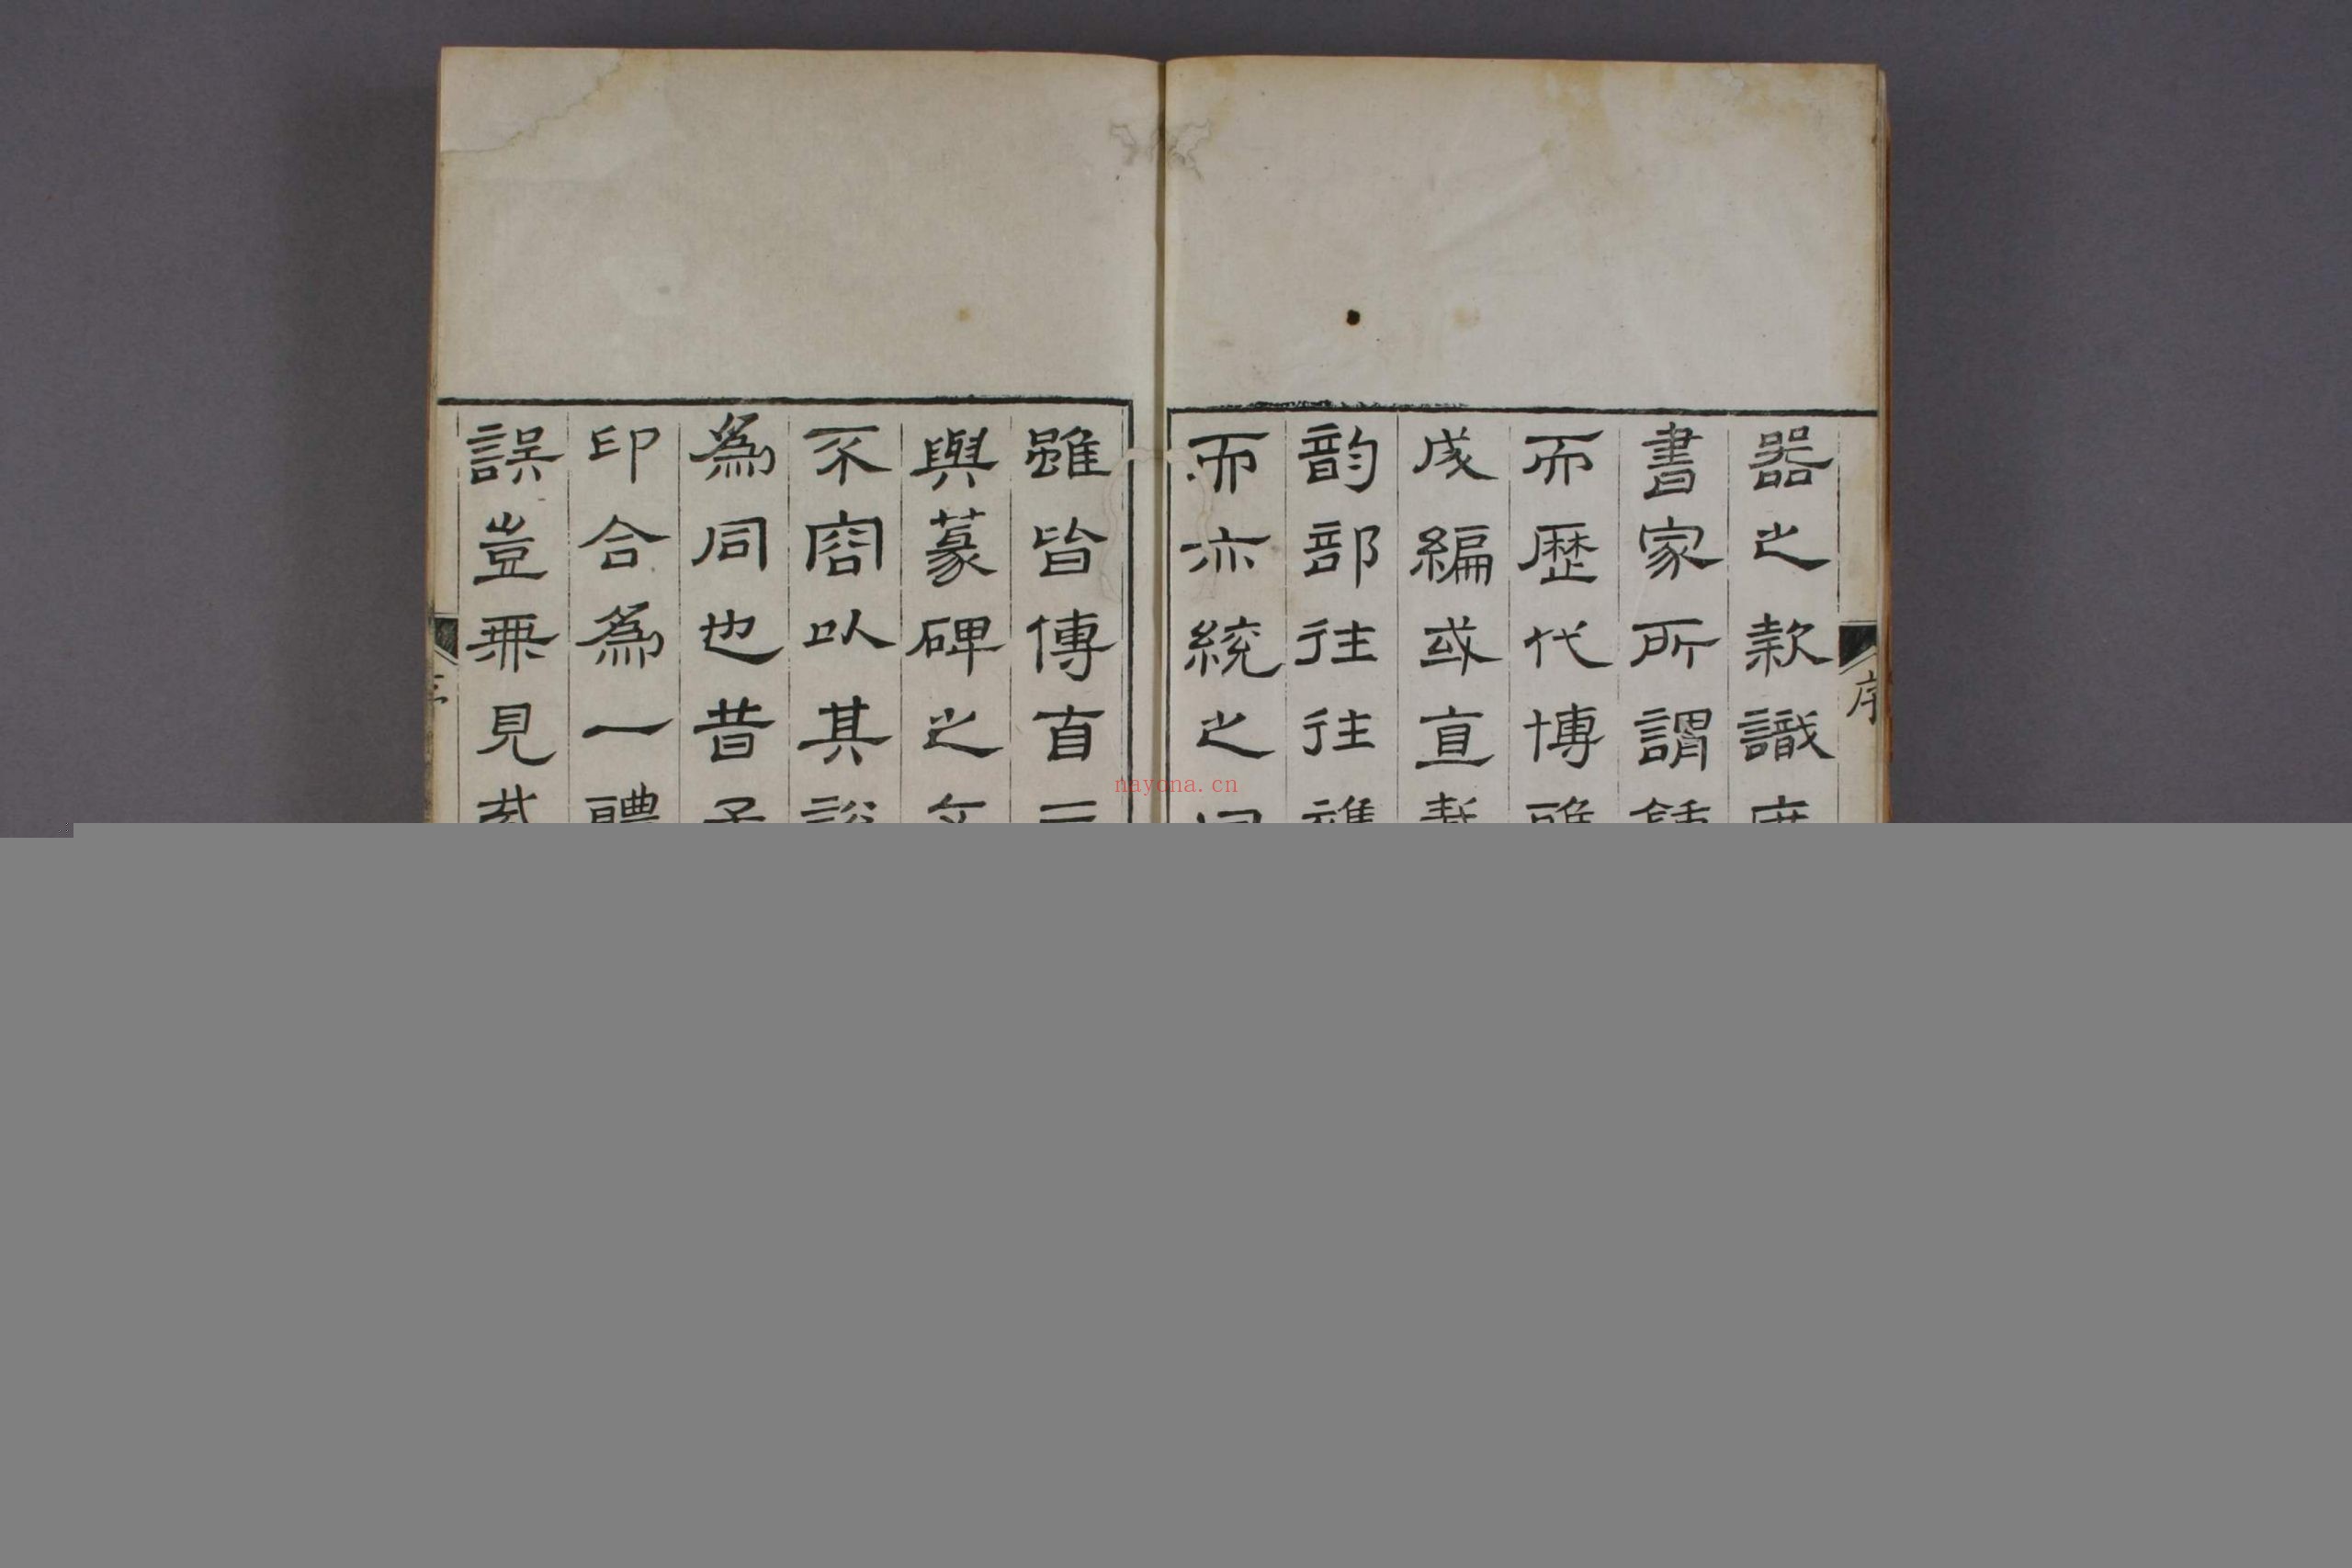 序
器之款識
書家所謂
而歷代博
成編或直
韵部往往
而亦統之
雖皆傳自
與篆碑之
不容以其
爲同也昔
印合爲一
誤豈兼見
nayona.cn